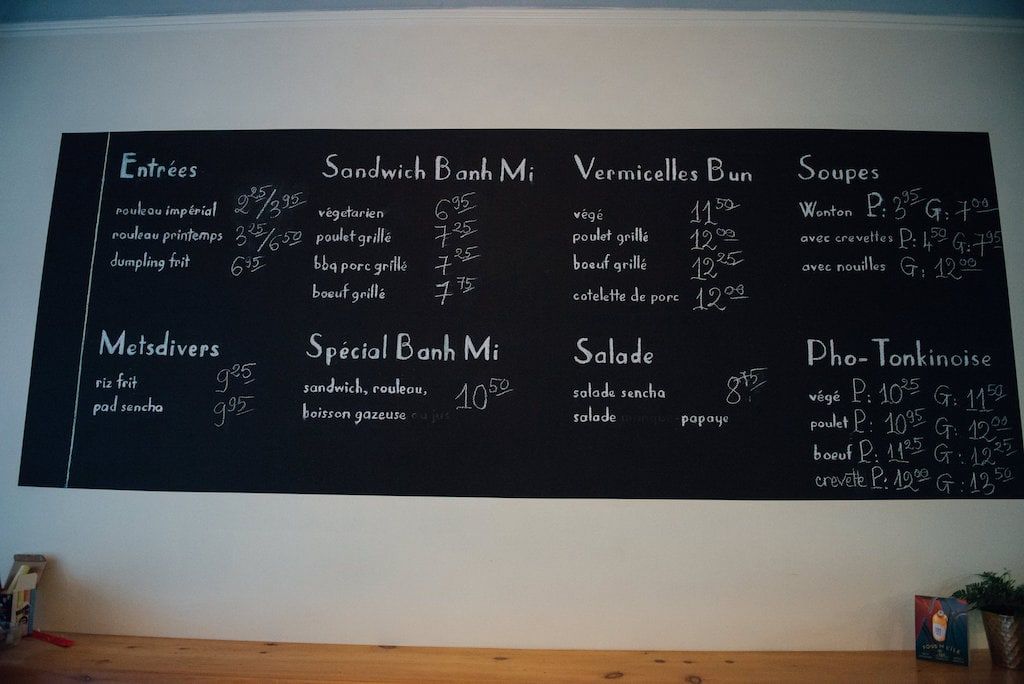 Entrées
rouleau impérial 2²⁵/3⁹⁵
rouleau printemps 3²⁵/6⁵⁰
dumpling frit 6⁹⁵
Sandwich Banh Mi
végetarien 6⁹⁵
poulet grillé 7²⁵
bbq porc grillé 7²⁵
boeuf grillé 7⁷⁵
Vermicelles Bun
végé 11⁵⁰
poulet grillé 12⁰⁰
boeuf grillé 12²⁵
cotelette de porc 12⁰⁰
Soupes
Wonton P: 3⁹⁵ G: 7⁰⁰
avec crevettes P: 4⁵⁰ G: 7⁹⁵
avec nouilles G: 12⁰⁰
Metsdivers
riz frit 9²⁵
pad sencha 9⁹⁵
Spécial Banh Mi
sandwich, rouleau, 10⁵⁰
boisson gazeuse ou jus
Salade
salade sencha 8⁷⁵
salade papaye
Pho-Tonkinoise
végé P: 10²⁵ G: 11⁵⁰
poulet P: 10⁹⁵ G: 12⁰⁰
boeuf P: 11²⁵ G: 12²⁵
crevette P: 12⁰⁰ G: 13⁵⁰